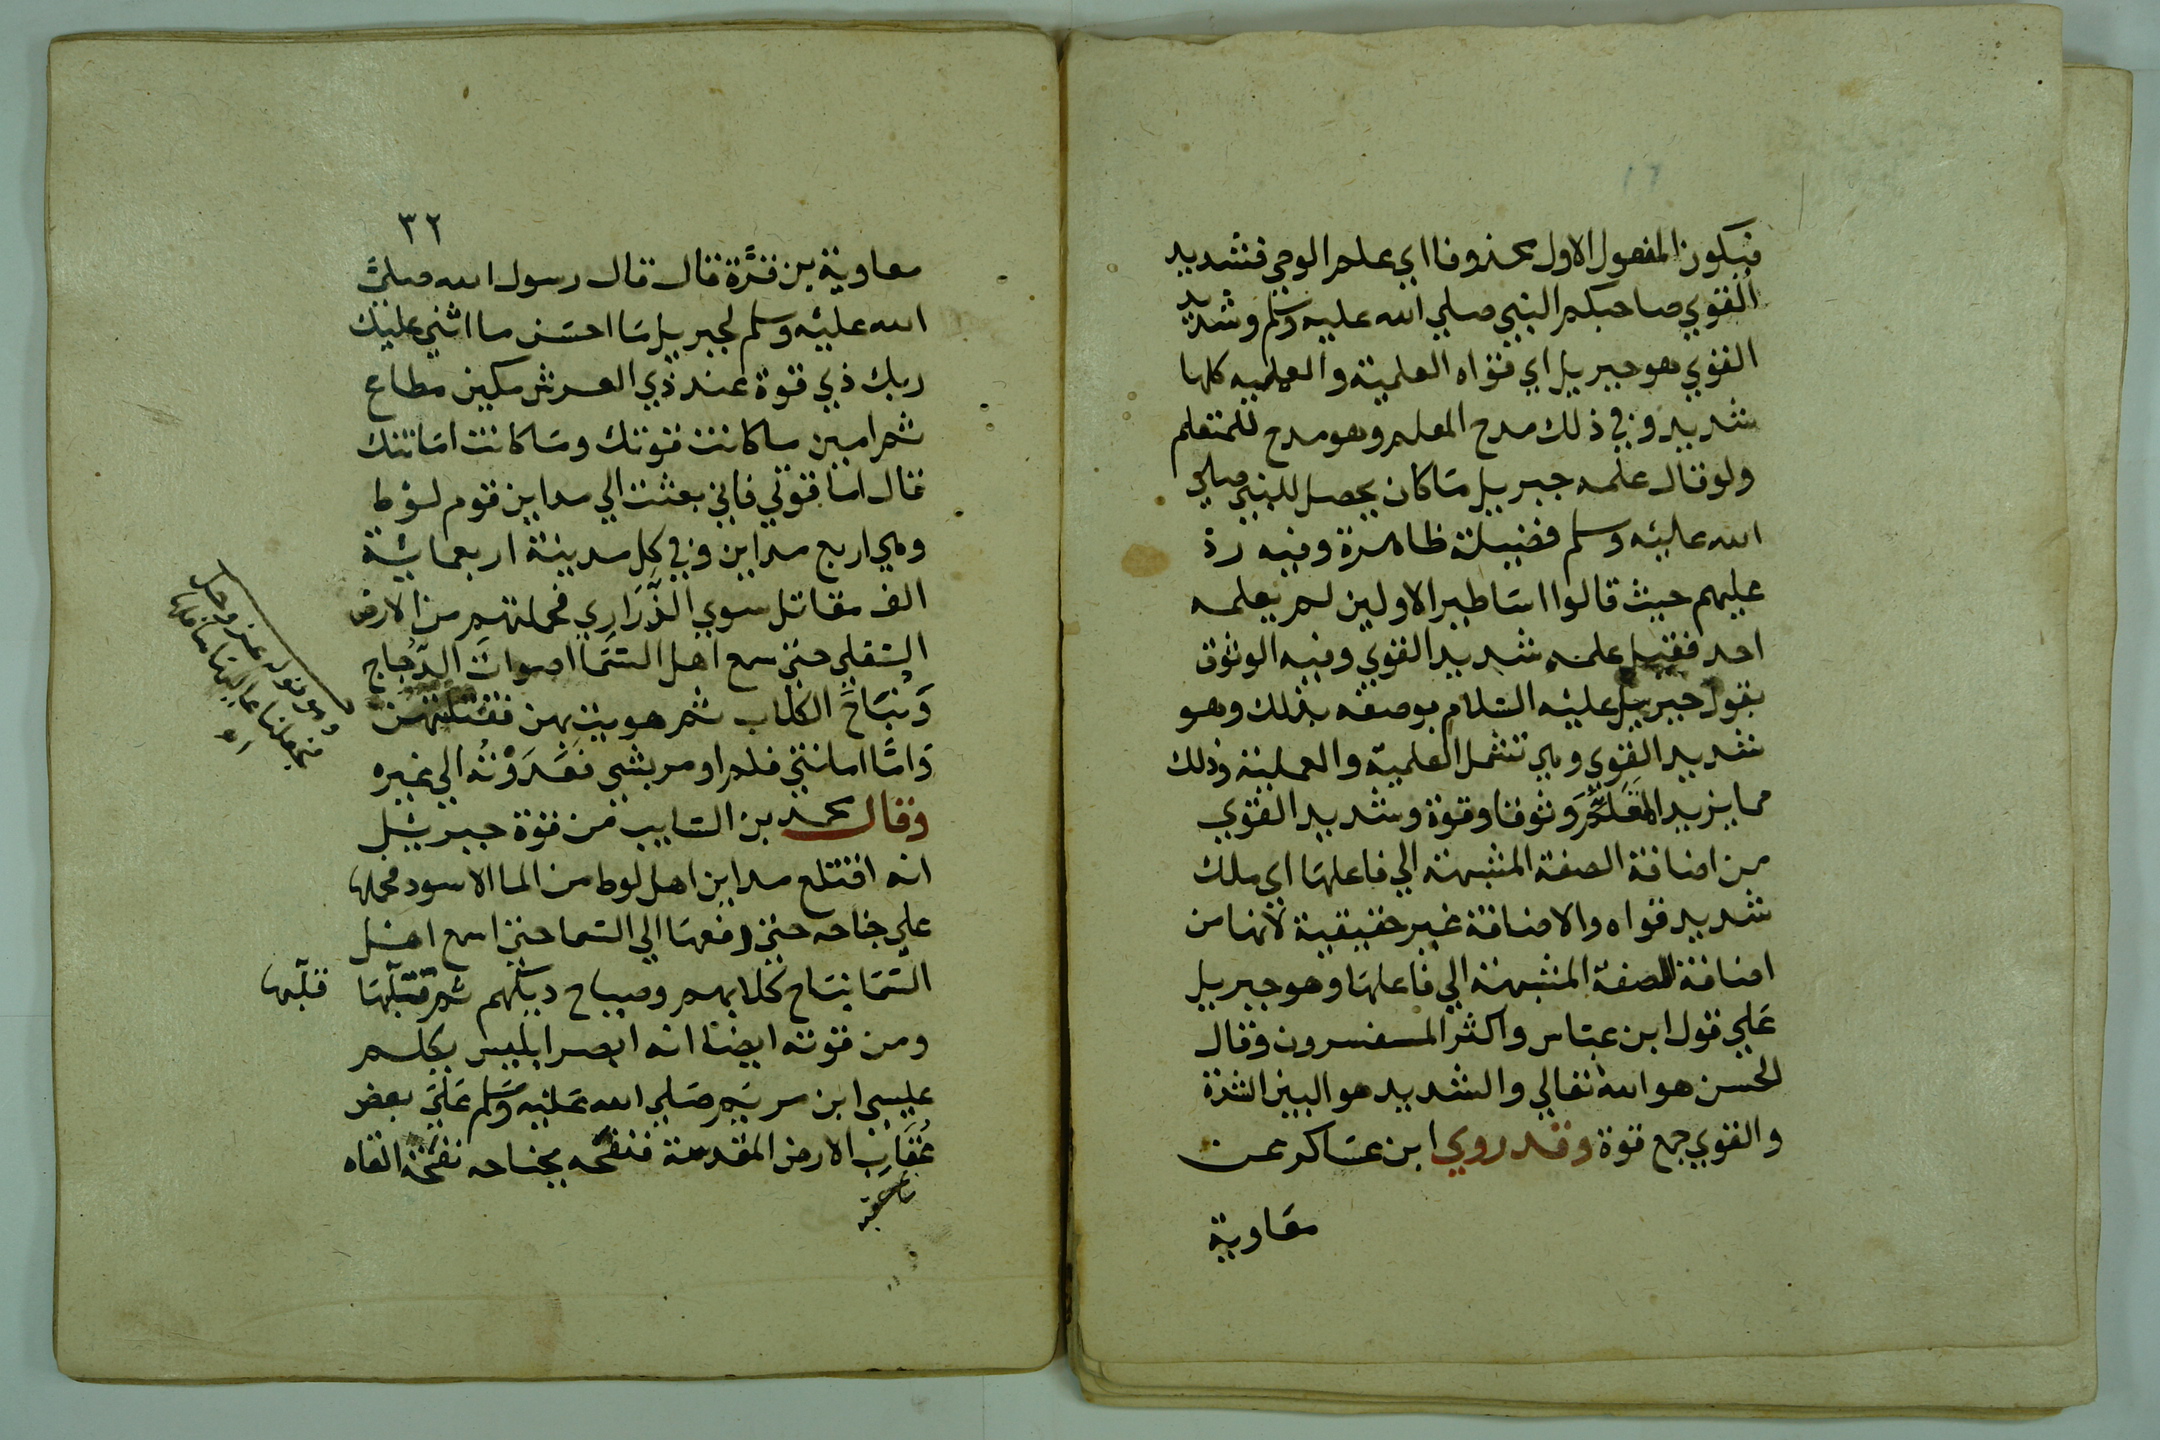 فيكون المفعول الاول محذوفا اي علم الوحي فشديد
القوي صاحبكم النبي صلي الله عليه وسلم وشديد
القوي هو جبريل اي قواه العلمية والعمليه كلها
شديد وفي ذلك مدح المعلم وهو مدح للمتعلم
ولو قال علمه جبريل ما كان يحصل للنبي صلي
الله عليه وسلم فضيلة ظاهرة وفيه رد
عليهم حيث قالوا اساطير الاولين لم يعلمه
احد فقيل علمه شديد القوي وفيه الوثوق
بقول جبريل عليه السلام بوصفه بذلك وهو
شديد القوي وهي تشمل العلمية والعملية وذلك
مما يزيد المتعلم وثوقا وقوة وشديد القوي
من اضافة الصفة المشبهة الي فاعلها اي ملك
شديد قواه والاضافة غير حقيقية لانها من
اضافة الصفة المشبهة الي فاعلها وهو جبريل
علي قول ابن عباس واكثر المسفسرون وقال
الحسن هو الله تعالي والشديد هو البين الشدة
والقوي جمع قوة وقد روي ابن عساكر عن
معاوية
٣٢
معاوية بن قرة قال قال رسول الله صلي
الله عليه وسلم لجبريل ما احسن ما اثني عليك
ربك ذي قوة عند ذي العرش مكين مطاع
ثم امين ما كانت قوتك وما كانت امانتك
قال اما قوتي فاني بعثت الي مداين قوم لوط
وهي اربع مداين وفي كل مدينة اربعمائة
الف مقاتل سوي الذراري فحملتهم من الارض
السفلي حتي سمع اهل السما اصوات الدجاج
ونباح الكلاب ثم هويت بهن فقتلتهن
واما امانتي فلم اومر بشي فعدوته الي غيره
وقال محمد بن السايب من قوة جبريل
انه اقتلع مداين اهل لوط من الما الاسود فحملها
علي جناحه حتي رفعها الي السما حتي اسمع اهل
السما نباح كلابهم وصياح ديكهم ثم قلبها
قلبها
ومن قوته ايضا انه ابصر ابليس يكلم
عليسي ابن مريم صلي الله عليه وسلم علي بعض
عقاب الارض المقدسة فنفحه بجناحه نفحة القاه
وهو قوله عز وجل
فجعلنا عاليها سافلها